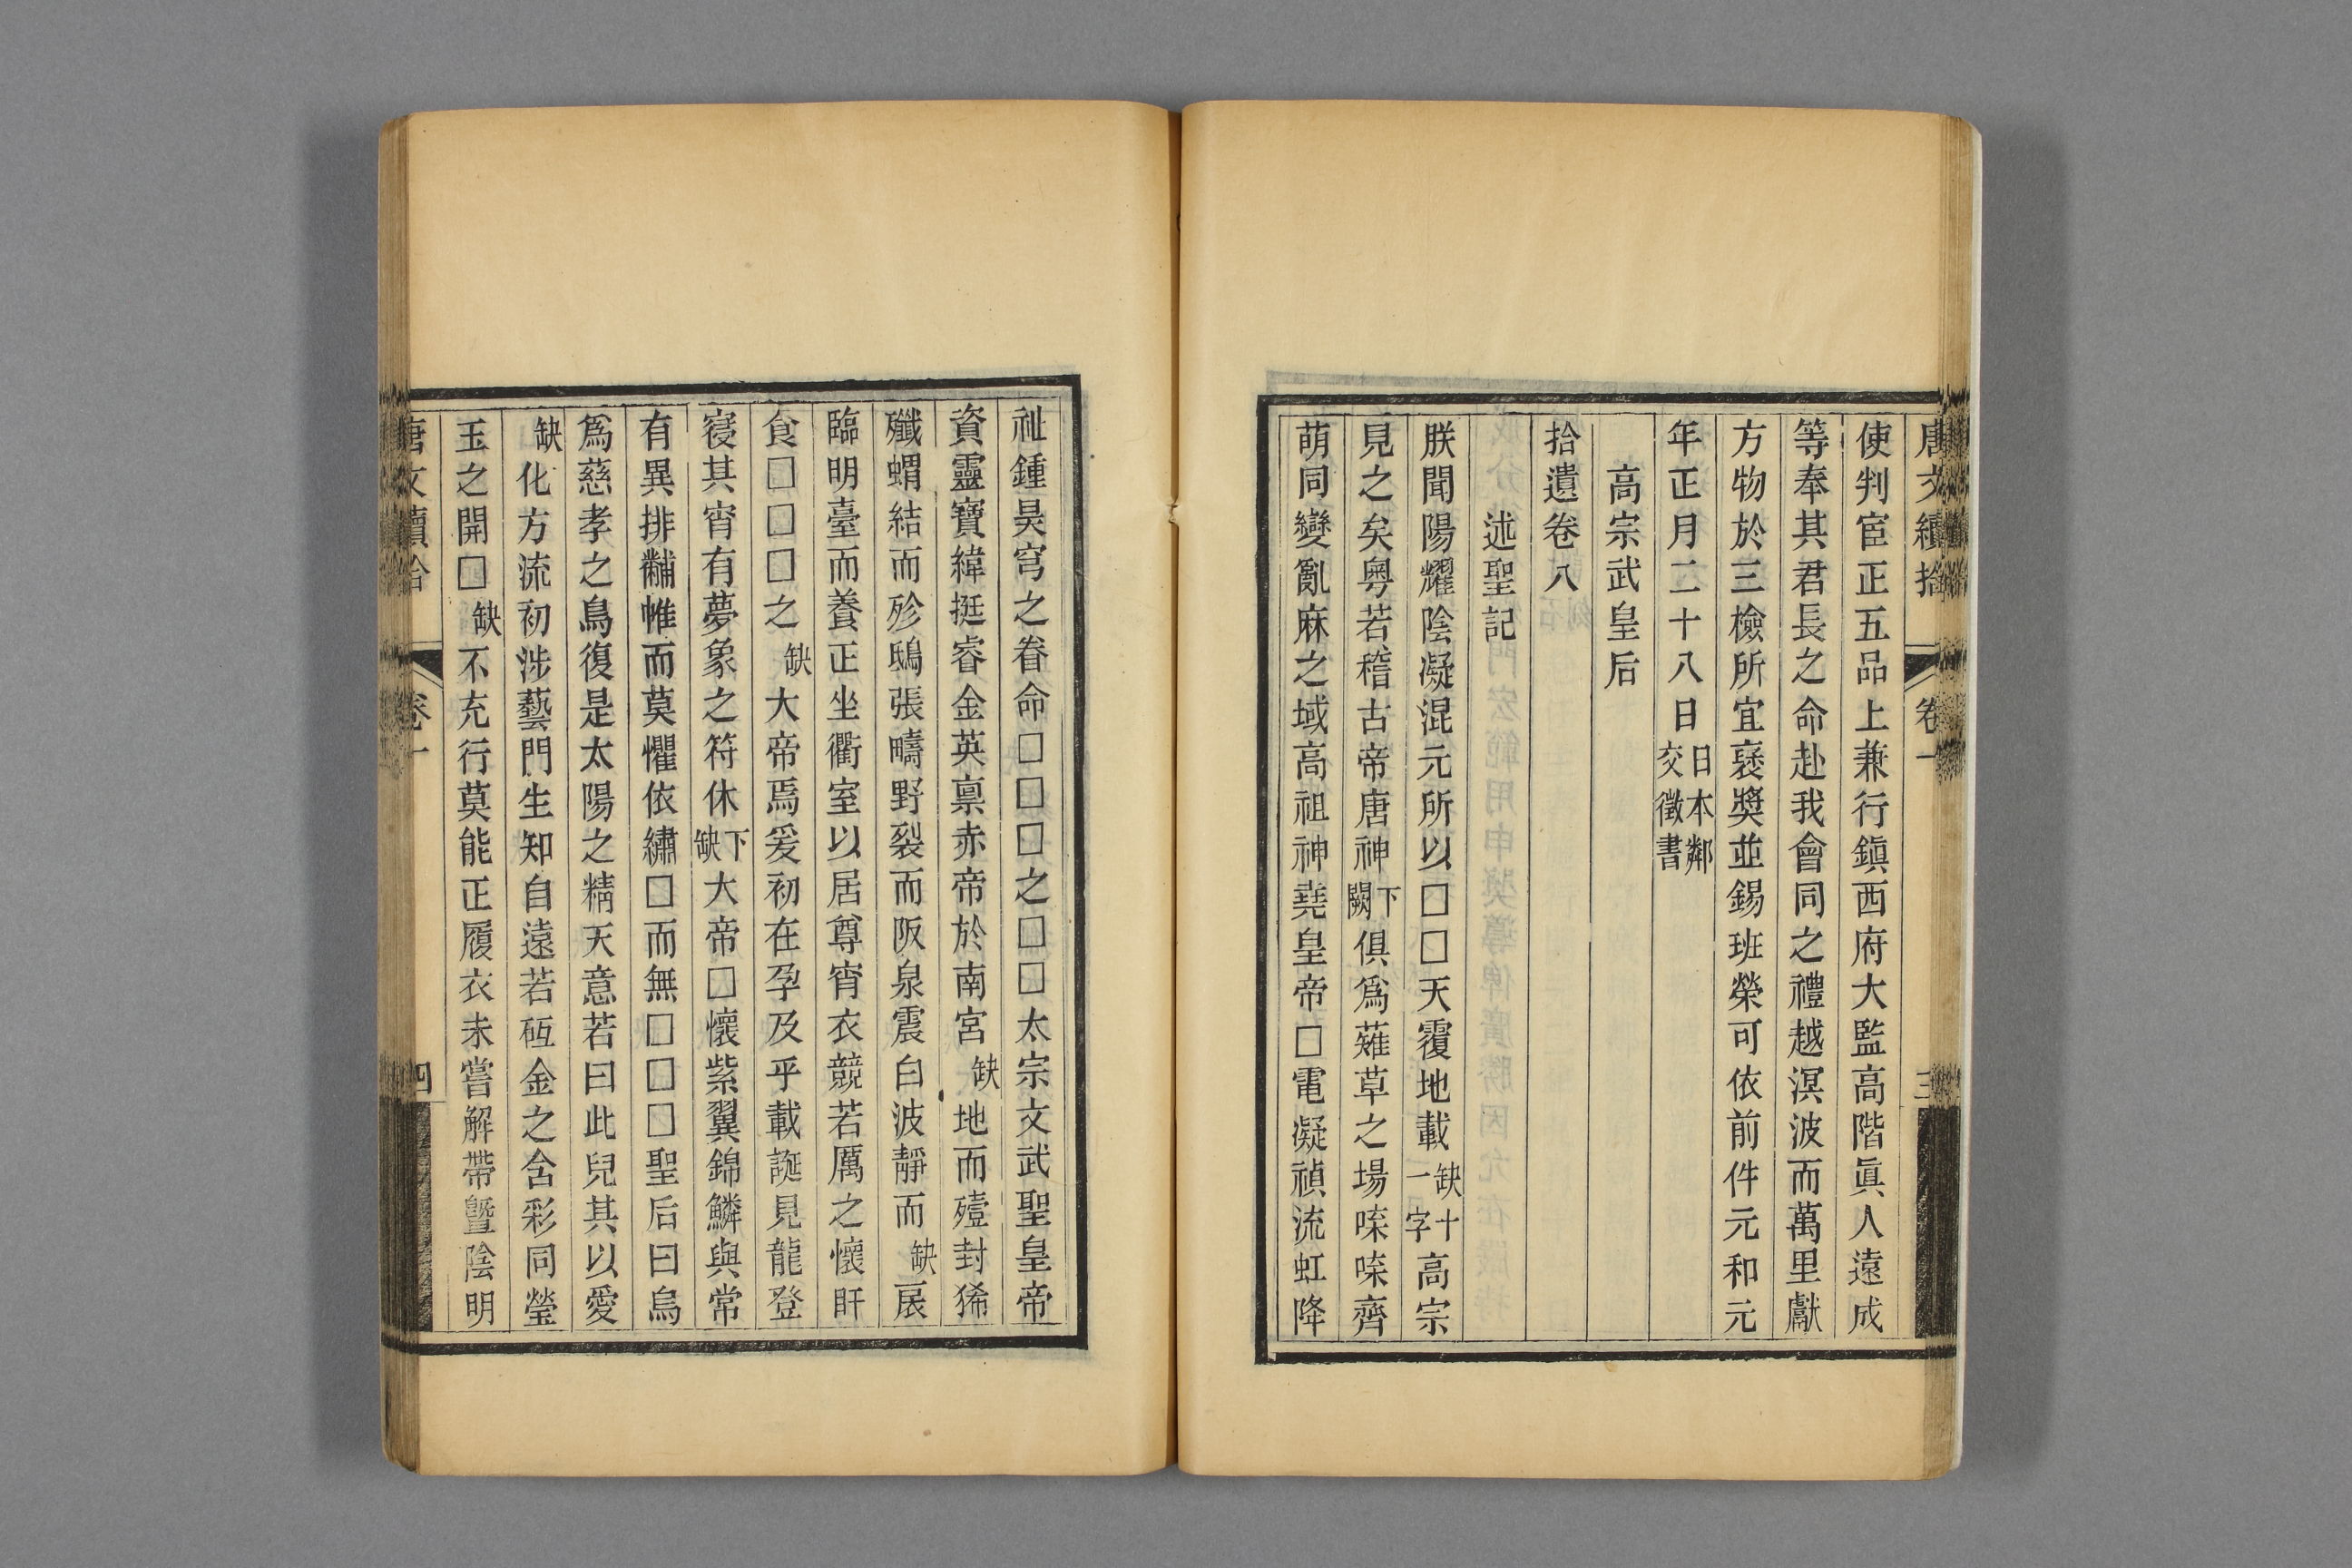 唐文續拾 卷一 三
使判官正五品上兼行鎭西府大監高階眞人遠成
等奉其君長之命赴我會同之禮越溟波而萬里獻
方物於三檢所宜襃奬並錫班榮可依前件元和元
年正月二十八日日本鄰交徵書
高宗武皇后
拾遺卷八
述聖記
朕聞陽耀陰凝混元所以□□天覆地載缺十一字高宗
見之矣粵若稽古帝唐神下闕俱爲薙草之場喍喍齊
萌同變亂麻之域高祖神堯皇帝□電凝禎流虹降
祉鍾昊穹之眷命□□□之□□太宗文武聖皇帝
資靈寶緯挺睿金英禀赤帝於南宮缺地而殪封狶
殲蝟結而殄鴟張疇野裂而阪泉震白波靜而缺扆
臨明臺而養正坐衢室以居尊宵衣競若厲之懷旰
食□□□之缺大帝焉爰初在孕及乎載誕見龍登
寑其宵有夢象之符休下缺大帝□懷紫翼錦鱗與常
有異排黼帷而莫懼依繡□而無□□□聖后曰烏
爲慈孝之鳥復是太陽之精天意若曰此兒其以愛
缺化方流初涉藝門生知自遠若砡金之含彩同瑩
玉之開□缺不充行莫能正履衣未嘗解帶曁陰明
唐文續拾 卷一 四